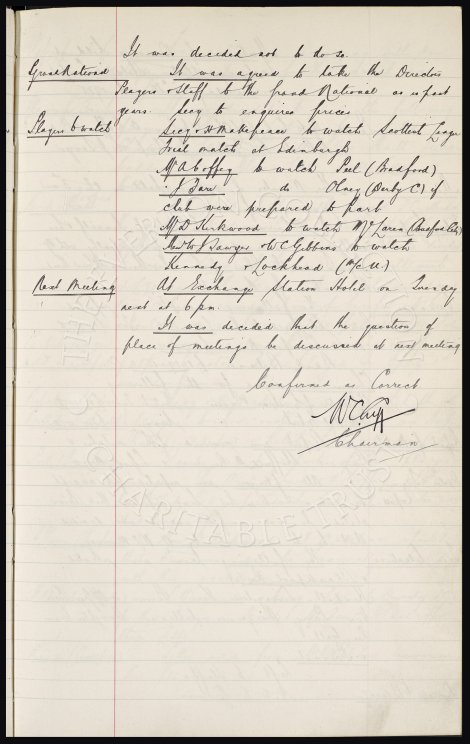 It was decided not to do so.
Grand National It was agreed to take the Directors
Players & Staff to the Grand National as in past
years. Secy to enquire prices
Players to watch Secy & H Makepeace to watch Scottish League
trial match at Edinburgh
Mr A Coffey to watch Peel (Bradford)
" J Fare do Olney (Derby C) if
club were prepared to part
Mr D Kirkwood to watch McLaren (Bradford City)
Messrs W Sawyer & W C Gibbins to watch
Kennedy & Lockhead (M/c U.)
Next Meeting At Exchange Station Hotel on Tuesday
next at 6 pm.
It was decided that the question of
place of meetings be discussed at next meeting
Confirmed as Correct
W C Cuff
Chairman
CHARITABLE TRUST